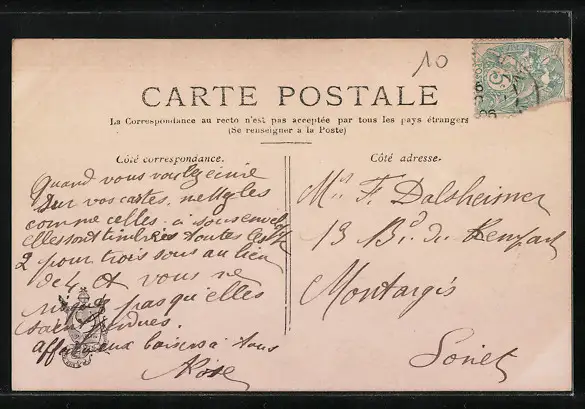 10
CARTE POSTALE
La Correspondance au recto n'est pas acceptée par tous les pays étrangers
(Se renseigner à la Poste)
Côté correspondance.
Quand vous voulez écrire
sur vos cartes, mettez les
comme celles-ci sous envel
elles sont timbrées toutes les
2 pour trois sous au lieu
de 4, et vous ne
risquez pas qu'elles
soient perdues.
affectueux baisers à tous
Rose
Côté adresse.
F. Dalsheimer
13 Bd. du
Montargis
Loiret